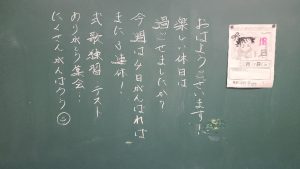 おはようございます！
楽しい休日は
過ごせましたか？
今週は4日がんばれば
また3連休！
式歌練習 テスト
ありがとう集会…
たくさんがんばろう